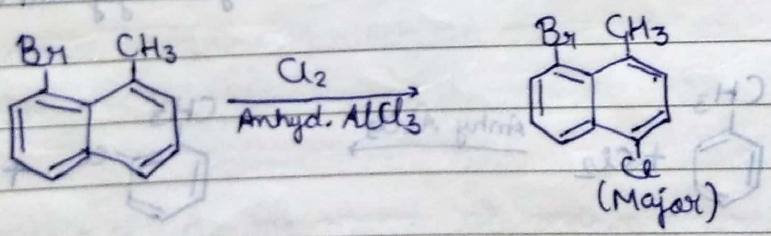 Br CH3
Cl2
Anhyd. AlCl3
Br CH3
Cl
(Major)